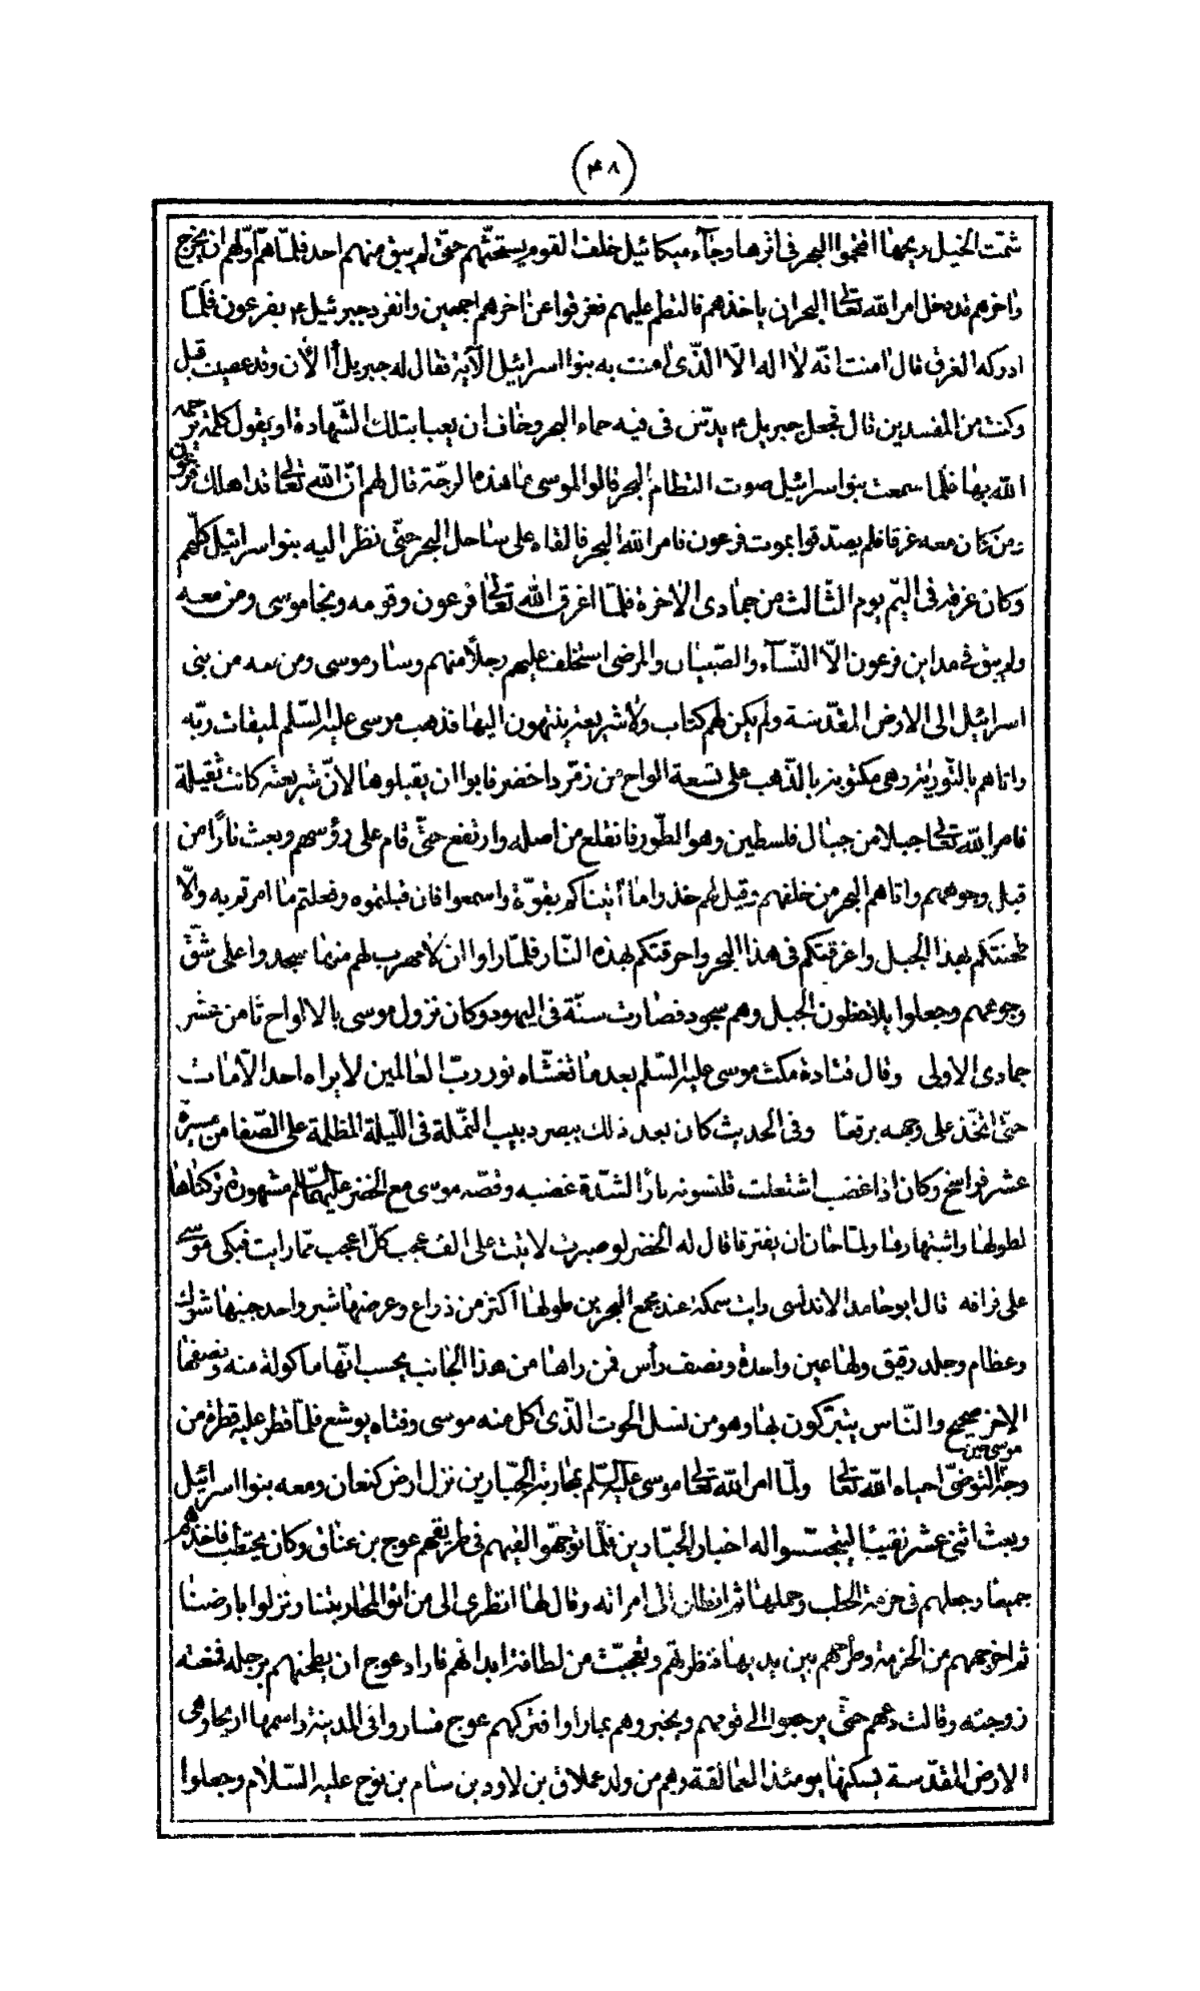 (۴۸)
شمّت الخيل ريحها اقتحموا البحر فى اثرها وجآء ميكائيل خلف القوم يستحثّهم حتّى لم يبق منهم احد فلمّا همّ اوّلهم ان يخرج
واخرهم قد دخل امر الله تعالى البحر ان ياخذهم فالتطم عليهم فغرقوا عن اخرهم اجمعين وانفرد جبرئيل ۴ بفرعون فلمّا
ادركه الغرق قال امنت انّه لا اله الّا الّذى امنت به بنوا اسرائيل الآية فقال له جبريل أ الأن وقد عصيت قبل
وكنت من المفسدين قال فجعل جبريل ۴ يدسّ فى فيه حماء البحر وخاف ان يعبا بتلك الشّهادة او يقول كلمة ترحمه
الله بها فلما سمعت بنوا سرائيل صوت التطام البحر قالوا لموسى ما هذه الرجّة قال لهم انّ الله تعالى قد اهلك فرعون
ومن كان معه غرقا فلم يصدّقوا بموت فرعون فامر الله البحر فالقاه على ساحل البحر حتّى نظر اليه بنوا سرائيل كلّهم
وكان غرقه فى اليّم يوم الثّالث من جمادى الاخرة فلمّا اغرق الله تعالى فرعون وقومه ونجا موسى ومن معه
ولم يبق فى مداين فرعون الاّ النّسآء والصّبيان والمرضى استخلف عليهم رجلاً منهم وسار موسى ومن معه من بنى
اسرائيل الى الارض المقدّسة ولم يكن لهم كتاب ولا شريعة ينتهون اليها فذهب موسى عليه السّلم لميقات ربّه
واتاهم بالتّورية وهى مكتوبة بالذّهب على تسعة الواح من زمرّد اخضر فابوا ان يقبلوها لانّ شريعته كانت ثقيلة
فامر الله تعالى جبلا من جبال فلسطين وهو الطّور فانقلع من اصله وارتفع حتّى قام على رؤسهم وبعث نارًا من
قبل وجوههم واتاهم البحر من خلفهم وقيل لهم خذوا ما أتيناكم بقوّة واسمعوا فان قبلتموه وفعلتم ما امرتم به والّا
طحنتكم بهذا الجبل واغرقتكم فى هذا البحر واحرقتكم بهذه النّار فلمّا راوا ان لا مهرب لهم منها سجدوا على شقّ
وجوههم وجعلوا يلاحظون الجبل وهم سجود فصارت سنّة فى اليهود وكان نزول موسى بالالواح ثامن عشر
جمادى الاولى وقال قتادة مكث موسى عليه السّلم بعد ما تغشّاه نور ربّ العالمين لا يراه احد الّا مات
حتّى اتّخذ على وجهه برقعًا وفى الحديث كان بعد ذلك يبصر دبيب النّملة فى اللّيلة المظلمة على الصّفا من مسيرة
عشر فراسخ وكان اذا غضب اشتعلت قلنسوته نارًا لشدّة غضبه وقصّه موسى مع الخضر عليهما السّلم مشهورة تركناها
لطولها واشتهارها ولمّا حان ان يفترقا قال له الخضر لو صبرت لاتيت على الف عجب كلّ اعجب ممّا رايت فبكى موسى
على فراقه قال ابو حامد الاندلسى رايت سمكة عند مجمع البحرين طولها أكثر من ذراع وعرضها شبر واحد جنبها شوك
وعظام وجلد رقيق ولها عين واحدة ونصف رأس فمن راها من هذا الجانب يحسب انّها ماكولة منه ونصفها
الاخر صحيح والنّاس يتبرّكون بها وهو من نسل الحوت الّذى اكل منه موسى وفتاه يوشع فلمّا قطر عليه قطرة من
موسى حين
التوضّى احياه الله تعالى ولمّا امر الله تعالى موسى عليه السّلم بمحاربة الجبّارين نزل ارض كنعان ومعه بنوا اسرائيل
وبعث اثنى عشر نقيبًا ليتجسّسوا له اخبار الجبّارين فلمّا توجّهوا لقيهم فى طريقهم عوج بن عناق وكان يحتطب فاخذهم
جميعا وجعلهم فى حزمة الحطب وحملها ثم انطلق الى امراته وقال لها انظرى الى من اتوا لمحاربتنا ونزلوا بارضنا
ثم اخرجهم من الحزمة وطرحهم بين يديها فنظرتهم وتعجبّت من لطافة ابدانهم فاراد عوج ان يطحنهم برجله فمنعته
زوجته وقالت دعهم حتّى يرجعوا الى قومهم ويخبروهم بما راوا فتركهم عوج فساروا فى المدينة واسمها اريحا وهى
الارض المقدّسة يسكنها يومئذ العمالقة وهم من ولد عملاق بن لاود بن سام بن نوح عليه السّلام وجعلوا